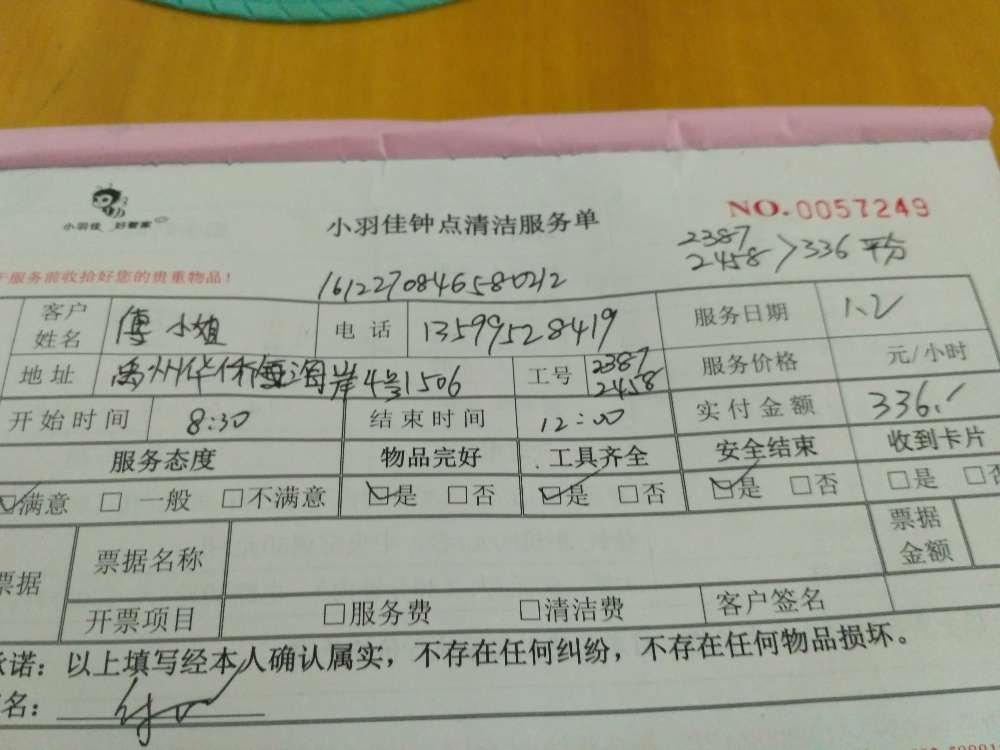 小羽佳 好管家
小羽佳钟点清洁服务单
NO.0057249
2387
2458 >336 平分
服务前收拾好您的贵重物品!
1612270846580212
客户姓名 傅小姐 电话 13599528419 服务日期 1.2
地址 禹州华侨海岸4号1506 工号 2387 2458 服务价格 元/小时
开始时间 8:30 结束时间 12:00 实付金额 336.
服务态度 物品完好 工具齐全 安全结束 收到卡片
☑满意 □一般 □不满意 ☑是 □否 ☑是 □否 ☑是 □否 □是 □否
票据 票据名称 票据金额
开票项目 □服务费 □清洁费 客户签名
承诺:以上填写经本人确认属实,不存在任何纠纷,不存在任何物品损坏。
名: